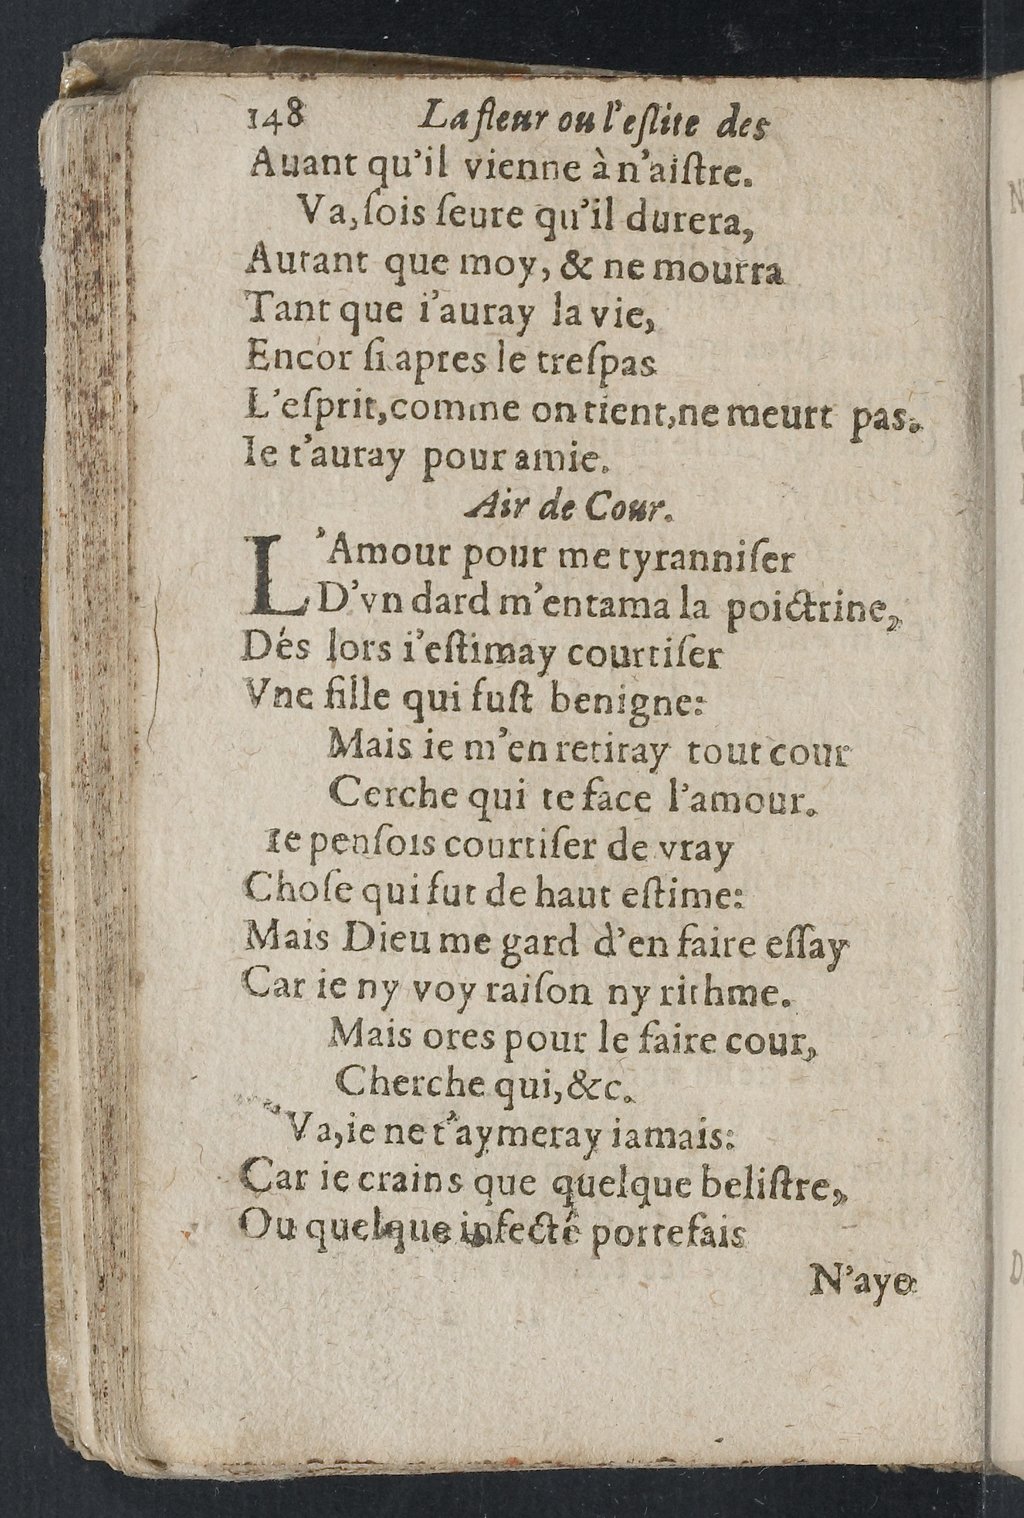 148 La fleur ou l'eſlite des
Auant qu'il vienne à n'aiſtre.
Va, ſois ſeure qu'il durera,
Autant que moy, & ne mourra
Tant que i'auray la vie,
Encor ſi apres le treſpas
L'eſprit, comme on tient, ne meurt pas.
Ie t'auray pour amie.
Air de Cour.
L'Amour pour me tyranniſer
D'vn dard m'entama la poictrine,
Dés lors i'eſtimay courtiſer
Vne fille qui fuſt benigne:
Mais ie m'en retiray tout cour
Cerche qui te face l'amour.
Ie penſois courtiſer de vray
Choſe qui fut de haut eſtime:
Mais Dieu me gard d'en faire eſſay
Car ie ny voy raiſon ny rithme.
Mais ores pour le faire cour,
Cherche qui, &c.
Va, ie ne t'aymeray iamais:
Car ie crains que quelque beliſtre,
Ou quelque infecté portefais
N'aye